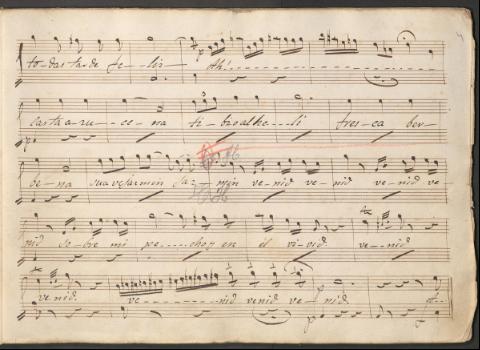 to-das tar-de fe-lis Ah!
casta a-zu-ce-na ti-bio alhe-li fres-ca ber-
be-na suave jazmin Jaz-min ve-nid ve-nid venid ve
nid so-bre mi pe-cho y en el vi-vid. ve-nid
ve nid. ve-nid venid ve-nid.